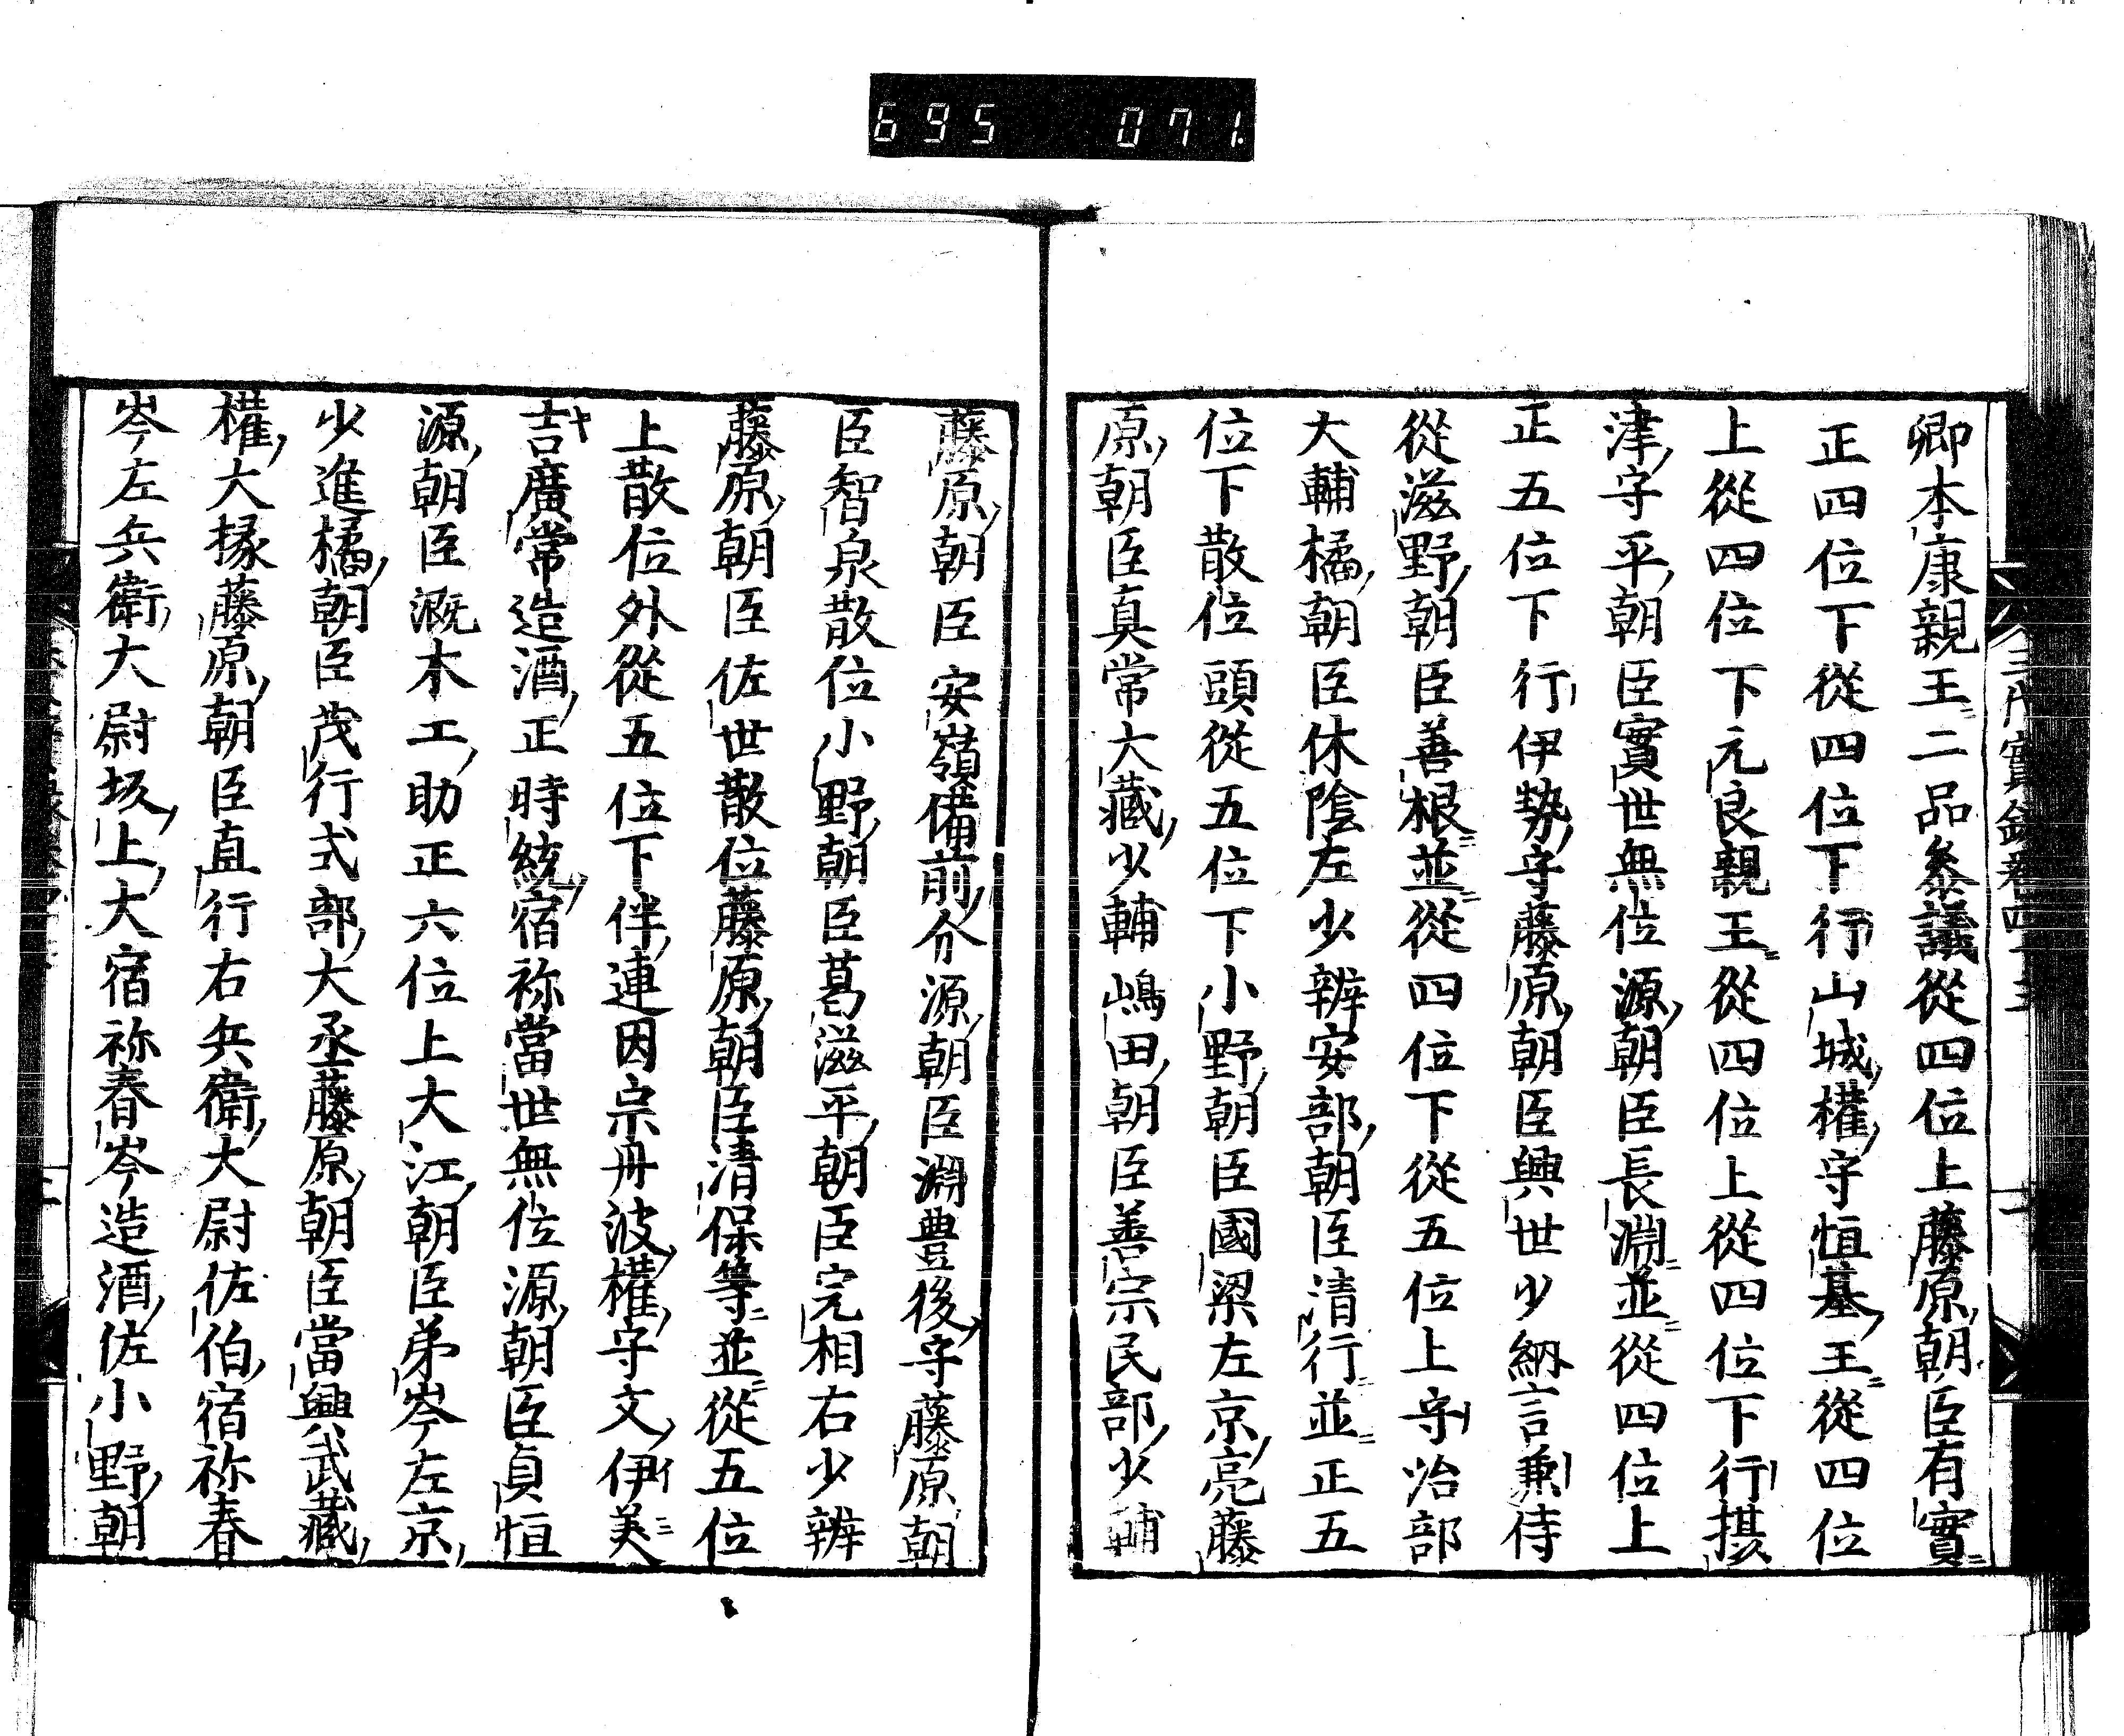 695 071
三代實録卷四十三
卿本康親王二品叅議從四位上藤原朝臣有實
正四位下從四位下行山城權守恒基王從四位
上從四位下元良親王從四位上從四位下行摂
津守平朝臣實世無位源朝臣長淵並從四位上
正五位下行伊勢守藤原朝臣興世少納言兼侍
從滋野朝臣善根並從四位下從五位上守治部
大輔橘朝臣休陰左少辨安部朝臣清行並正五
位下散位頭從五位下小野朝臣國梁左京亮藤
原朝臣真常大藏少輔嶋田朝臣善宗民部少輔
藤原朝臣安嶺備前介源朝臣淵豊後守藤原朝
臣智泉散位小野朝臣葛滋平朝臣完相右少辨
藤原朝臣佐世散位藤原朝臣清保等並從五位
上散位外從五位下伴連因宗丹波權守文伊美
吉廣常造酒正時統宿祢當世無位源朝臣貞恒
源朝臣漑木工助正六位上大江朝臣弟岑左京
少進橘朝臣茂行式部大丞藤原朝臣當興武藏
權大掾藤原朝臣直行右兵衛大尉佐伯宿祢春
岑左兵衛大尉坂上大宿祢春岑造酒佐小野朝